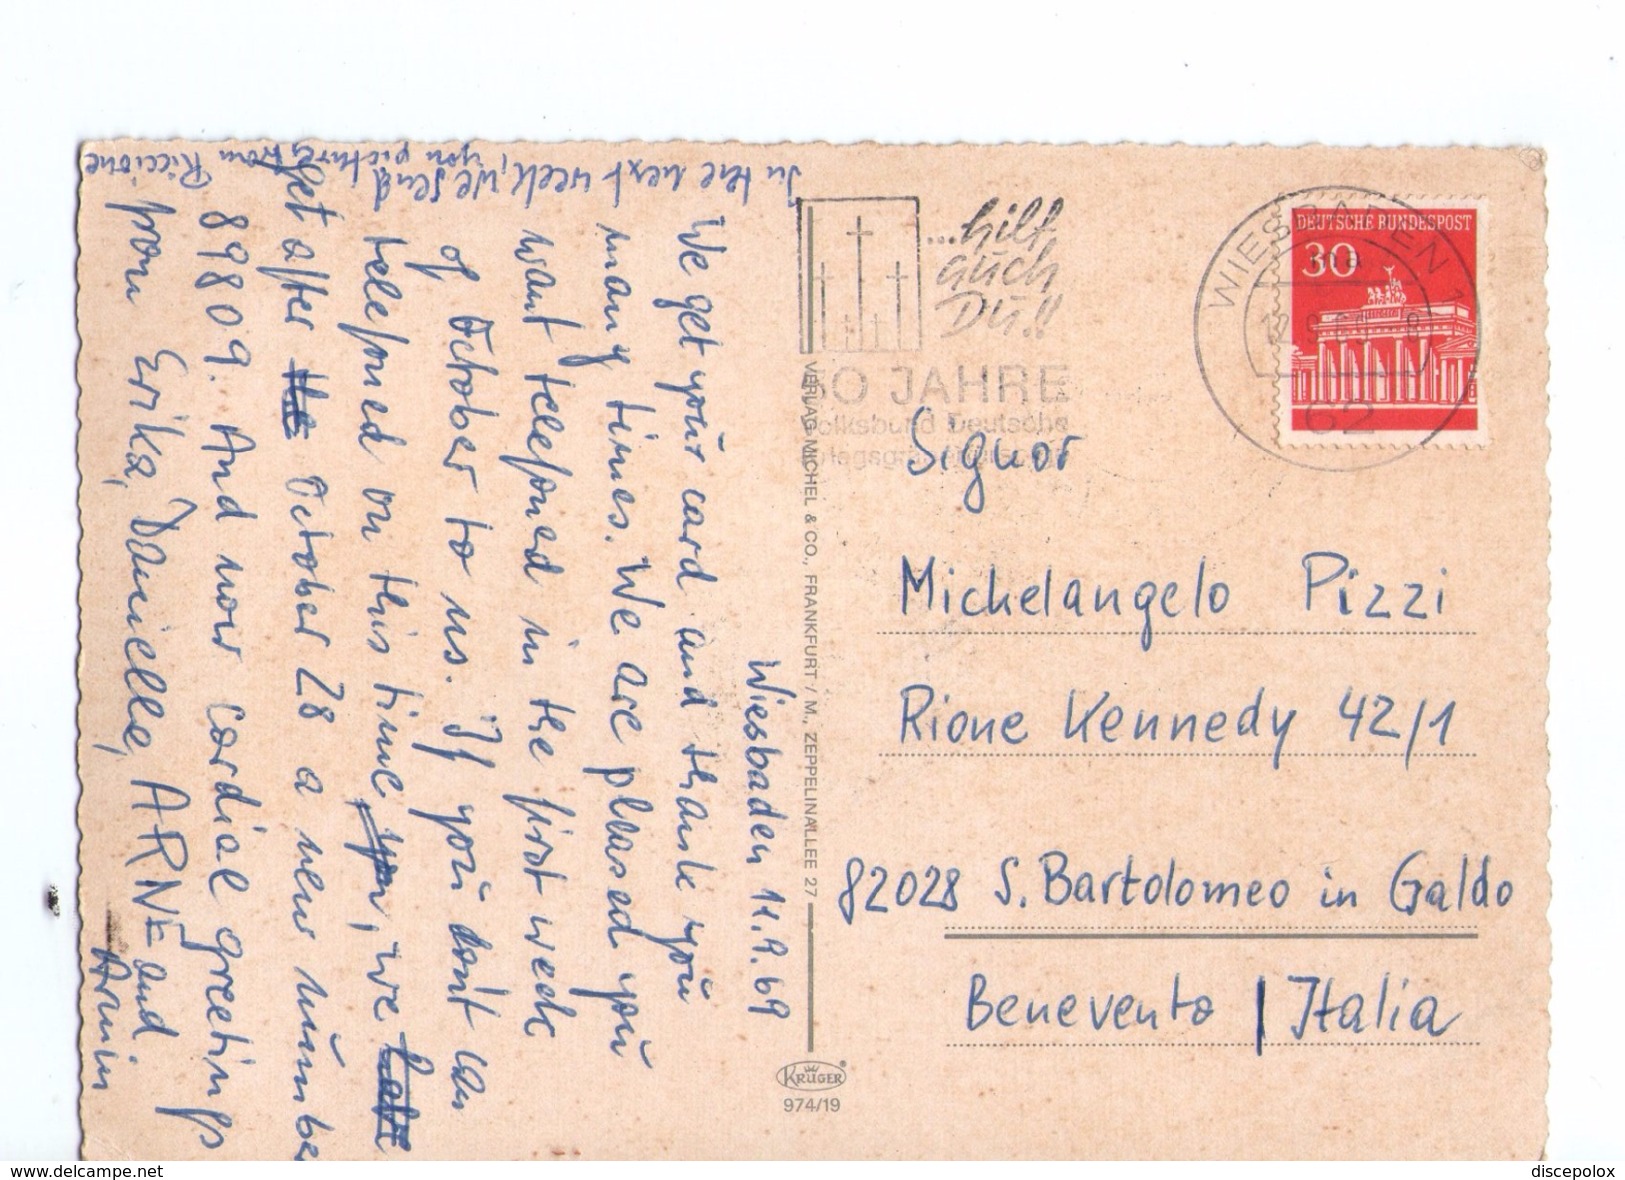 Wiesbaden 11.9.69
We get your card and thank you
many times. We are pleased you
want telefoned in the first week
of October to us. If you dont can
telefoned on this time you, we
get after the October 28 a new number
89809. And now cordial greetings
from Erika, Danielle, ARNE and
Armin
In the next week, we send
you pictures from Riccione
...hilf
auch
Du!!
50 JAHRE
Volksbund Deutsche
DEUTSCHE BUNDESPOST
30
WIESBADEN 1
62
VERLAG MICHEL & CO., FRANKFURT / M., ZEPPELINALLEE 27
KRÜGER
974/19
Signor
Michelangelo Pizzi
Rione Kennedy 42/1
82028 S. Bartolomeo in Galdo
Benevento / Italia
www.delcampe.net
discepolox